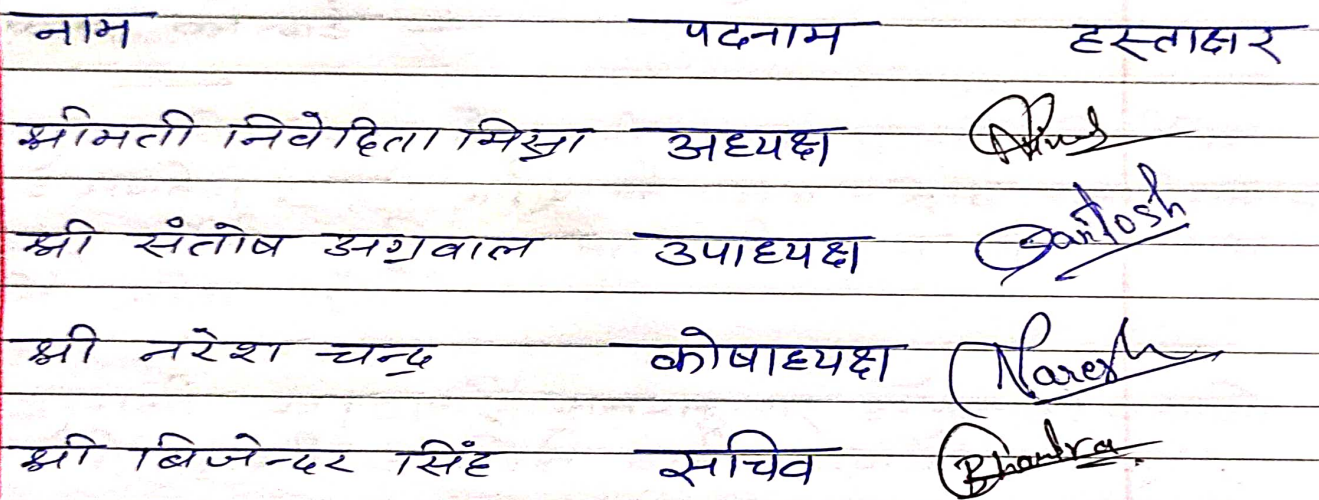 नाम पदनाम हस्ताक्षर
श्रीमती निवेदिता मिस्रा अध्यक्ष
श्री संतोष अग्रवाल उपाध्यक्ष Santosh
श्री नरेश चन्द्र कोषाध्यक्ष Naresh
श्री बिजेन्दर सिंह सचिव